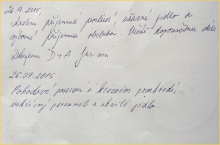 Velmi příjemné posezení, úžasné jídlo a
výborná příjemná obsluha. Určitě doporučíme dále
Děkujeme D + A
26.09.2015
Pohodové posezení v krásném prostředí,
vstřícný personál a skvělé jídlo.